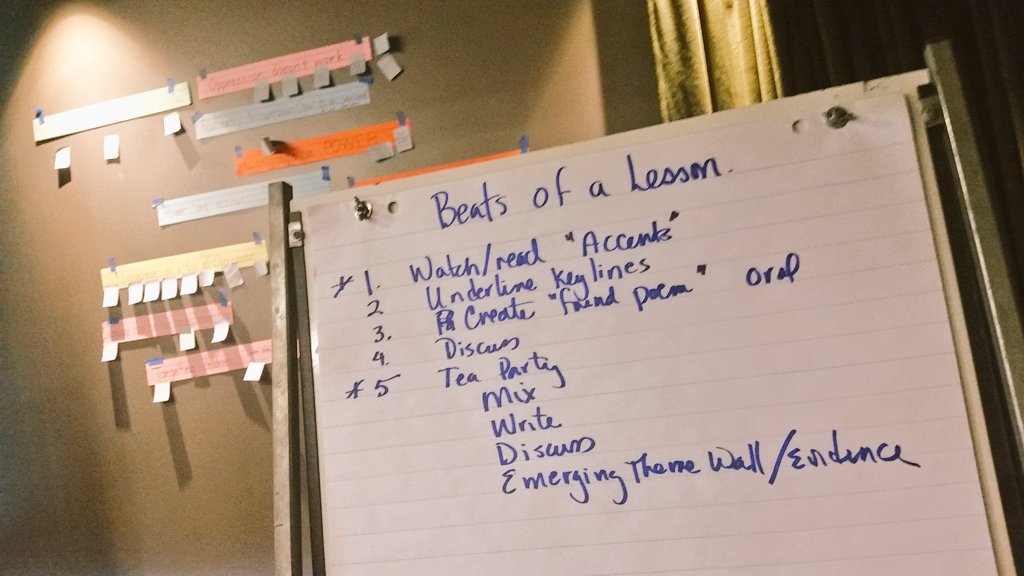 Oppression doesn't work
POWER
Beats of a Lesson.
* 1. Watch/read "Accents"
2 Underline key lines
3. Create "found poem" oral
4. Discuss
* 5 Tea Party
Mix
Write
Discuss
Emerging Theme Wall/Evidence